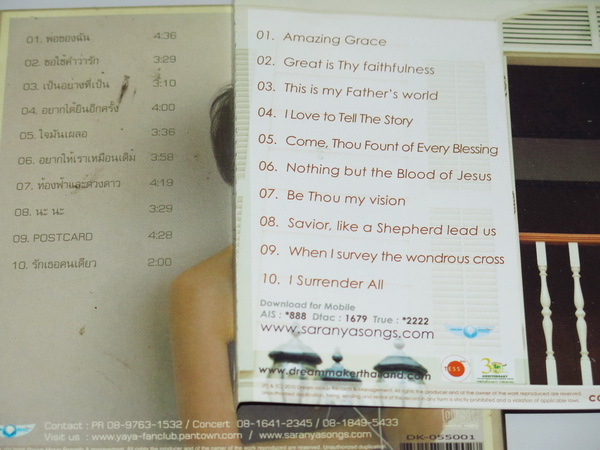 01. พ่อของฉัน 4:36
02. ขอใช้คำว่ารัก 3:29
03. เป็นอย่างที่เป็น 3:10
04. อยากได้ยินอีกครั้ง 4:00
05. ใจมันเผลอ 3:36
06. อยากให้เราเหมือนเดิม 3:58
07. ท้องฟ้าและดวงดาว 4:19
08. นะ นะ 3:29
09. POSTCARD 4:28
10. รักเธอคนเดียว 2:00
Contact : PR 08-9763-1532 / Concert 08-1641-2345 / 08-1849-5433
Visit us : www.yaya-fanclub.pantown.com / www.saranyasongs.com
DK-055001
01. Amazing Grace
02. Great is Thy faithfulness
03. This is my Father's world
04. I Love to Tell The Story
05. Come, Thou Fount of Every Blessing
06. Nothing but the Blood of Jesus
07. Be Thou my vision
08. Savior, like a Shepherd lead us
09. When I survey the wondrous cross
10. I Surrender All
Download for Mobile
AIS : *888 Dtac : 1679 True : *2222
www.saranyasongs.com
www.dreammakerthailand.com